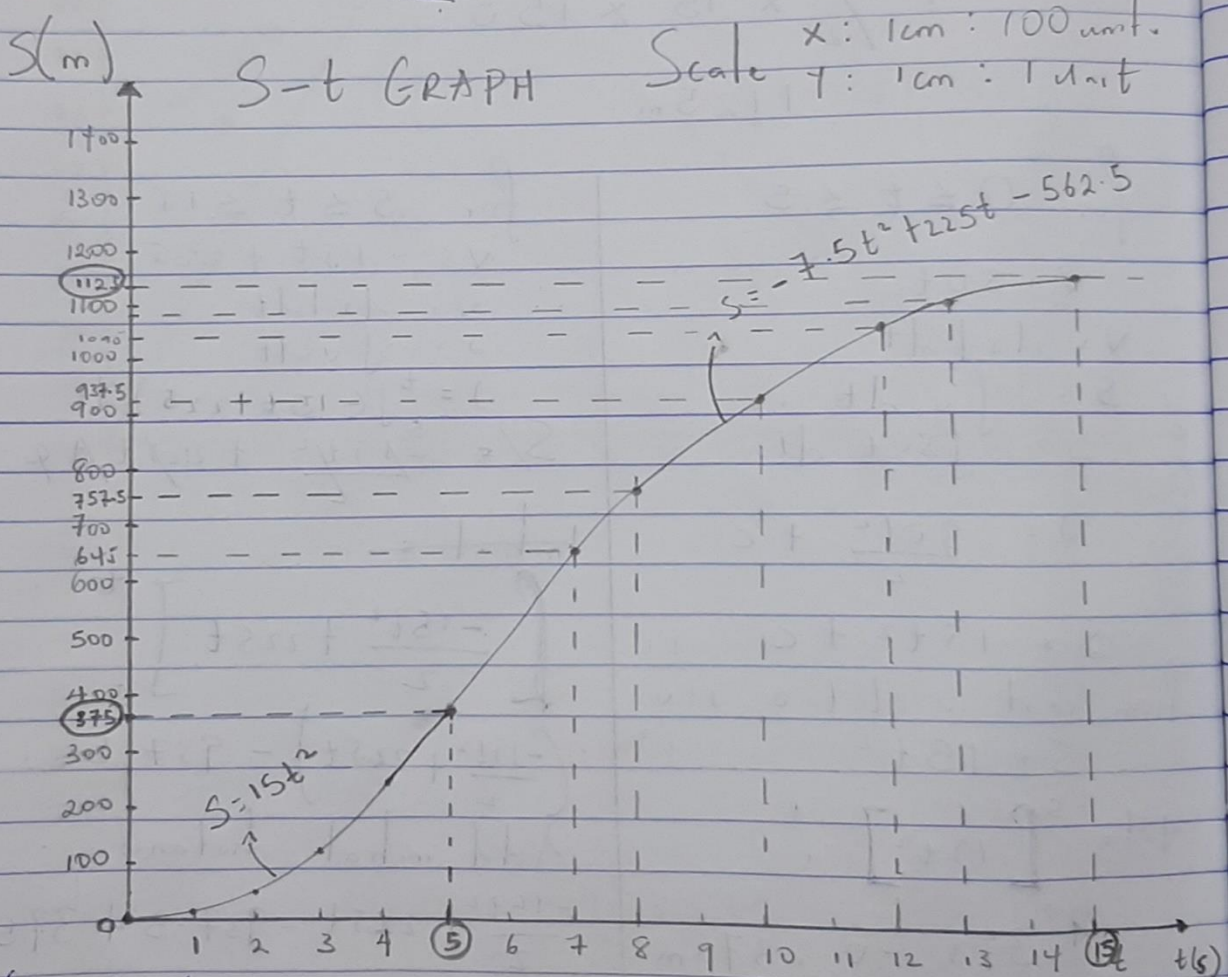 S(m)
S-t GRAPH
Scale X: 1cm : 100 unit.
Y: 1cm : 1 Unit
1400
1300
1200
1125
1100
1000
937.5
900
800
757.5
700
645
600
500
400
375
300
200
100
0
S=-7.5t²+225t-562.5
S=15t²
1 2 3 4 5 6 7 8 9 10 11 12 13 14 15 t t(s)